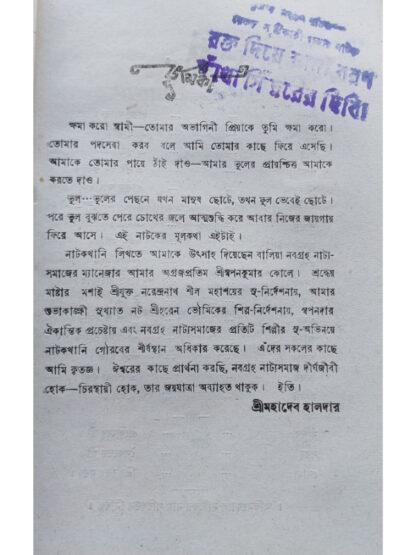 রক্ত দিয়ে
ভূমিকা
ক্ষমা করো স্বামী—তোমার অভাগিনী প্রিয়াকে তুমি ক্ষমা করো।
তোমার পদসেবা করব বলে আমি তোমার কাছে ফিরে এসেছি।
আমাকে তোমার পায়ে ঠাঁই দাও—আমার ভুলের প্রায়শ্চিত্ত আমাকে
করতে দাও।
ভুল…ভুলের পেছনে যখন মানুষ ছোটে, তখন ফুল ভেবেই ছোটে।
পরে ভুল বুঝতে পেরে চোখের জলে আত্মশুদ্ধি করে আবার নিজের জায়গায়
ফিরে আসে। এই নাটকের মূলকথা এইটাই।
নাটকখানি লিখতে আমাকে উৎসাহ দিয়েছেন বালিয়া নবগ্রহ নাট্য-
সমাজের ম্যানেজার আমার অগ্রজপ্রতিম শ্রীস্বপনকুমার কোলে। শ্রদ্ধেয়
মাষ্টার মশাই শ্রীযুক্ত নরেন্দ্রনাথ শীল মহাশয়ের সু-নির্দেশনায়, আমার
শুভাকাঙ্ক্ষী সুখ্যাত নট শ্রীহরেন ভৌমিকের শিল্প-নির্দেশনায়, স্বপনদার
ঐকান্তিক প্রচেষ্টায় এবং নবগ্রহ নাট্যসমাজের প্রতিটি শিল্পীর সু-অভিনয়ে
নাটকখানি গৌরবের শীর্ষস্থান অধিকার করেছে। এঁদের সকলের কাছে
আমি কৃতজ্ঞ। ঈশ্বরের কাছে প্রার্থনা করছি, নবগ্রহ নাট্যসমাজ দীর্ঘজীবী
হোক—চিরস্থায়ী হোক, তার জয়যাত্রা অব্যাহত থাকুক। ইতি।
শ্রীমহাদেব হালদার